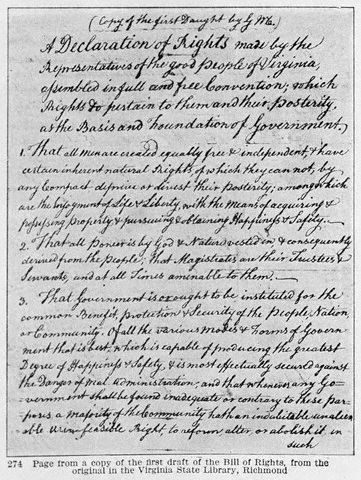 (Copy of the first Daught by G M.)
A Declaration of Rights made by the
Representatives of the good People of Virginia,
assembled in full and free Convention; which
Rights do pertain to them and their posterity,
as the Basis and Foundation of Government.
1. That all men are created equally free & independent, & have
certain inherent natural Rights, of which they cannot, by
any Compact deprive or divest their posterity; among which
are the Enjoyment of Life & Liberty, with the means of acquiring &
possessing Property, & pursueing & obtaining Happiness & Safety.
2. That all Power is by God & Nature vested in, & consequently
derived from the People; that Magistrates are their Trustees &
Servants, and at all Times amenable to them.
3. That Government is or ought to be instituted for the
common Benefit, protection & Security of the People, Nation,
or Community. Of all the various modes & Forms of Govern
ment that is best, which is capable of producing the greatest
Degree of Happiness & Safety, & is most effectually secured against
the Danger of mal-administration; and that whenever any Go-
vernment shall be found inadequate or contrary to these pur
poses a majority of the Community hath an indubitable unalien
able Right, to reform, alter or abolish it in
such
274 Page from a copy of the first draft of the Bill of Rights, from the
original in the Virginia State Library, Richmond